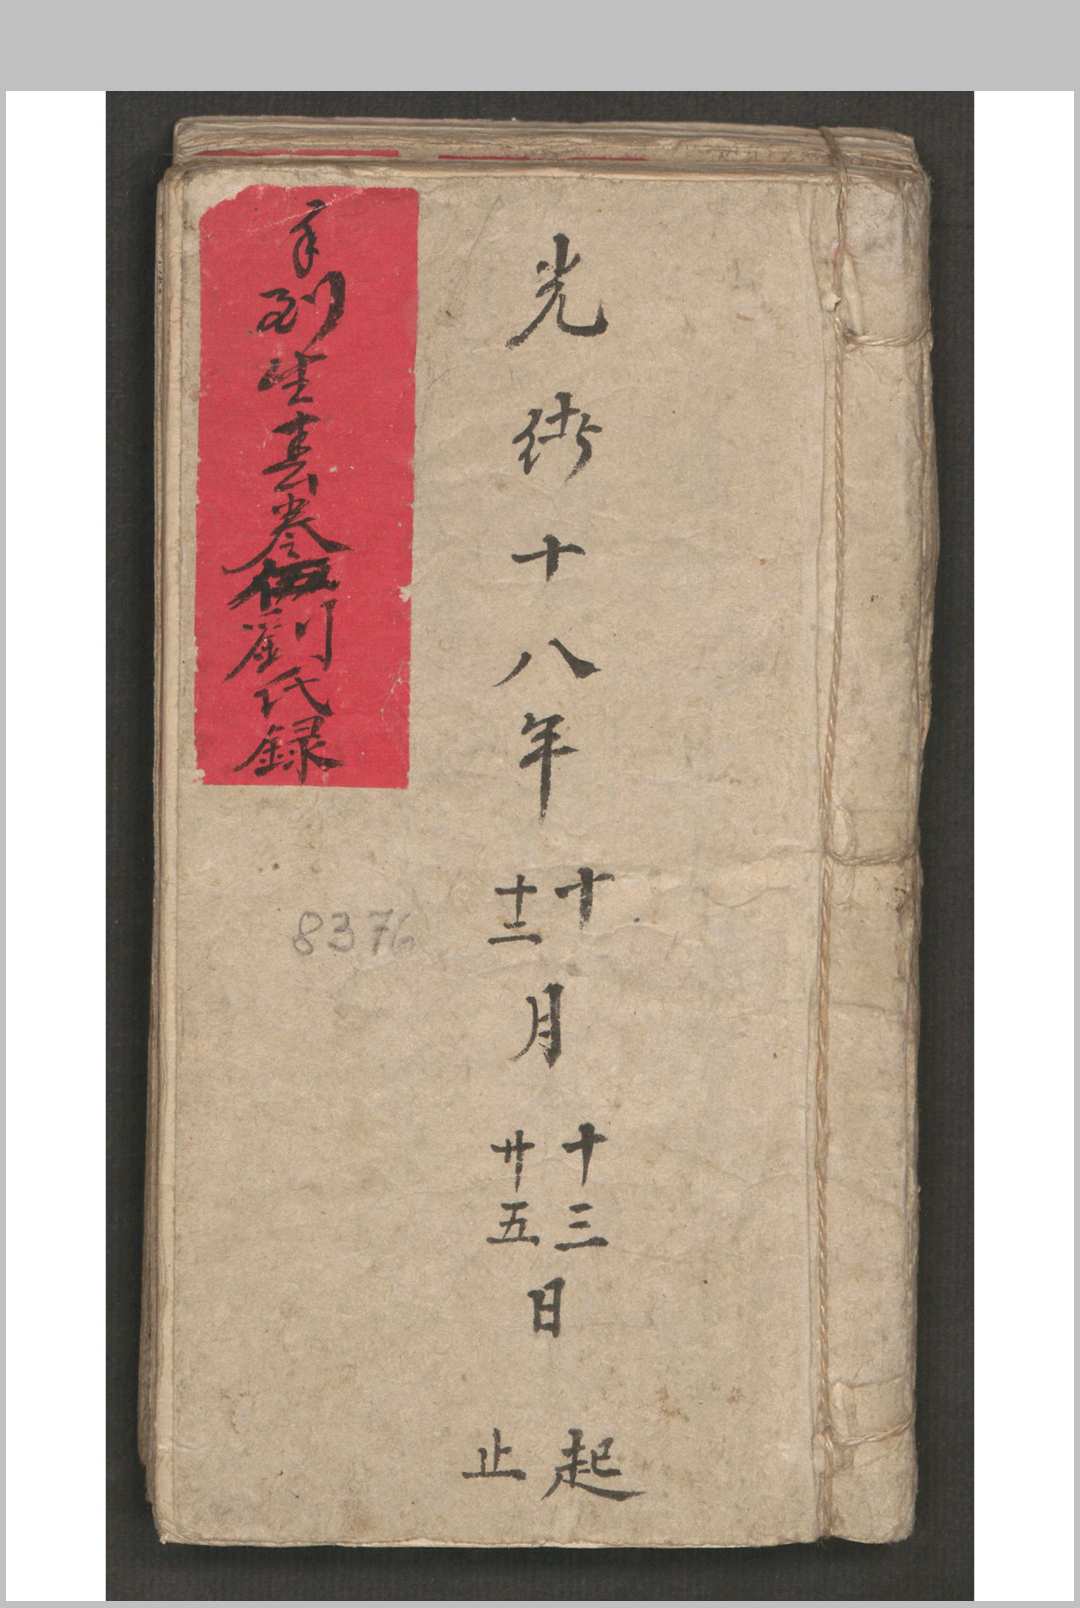 光緒十八年
十
十二
月
十三
廿五
日
起
止
手到生春卷伍劉氏録
8376